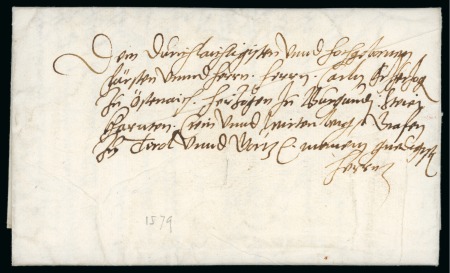 Dem Durchlauchtigisten vnnd hochgebornnen
Fürsten vnnd herrn. herrn. Carln Erzherzog
Zu Österreich. Herzogen zu Burgundj Steir
Kharnten, Crain vnnd Wirtenberg Grafen
Zu Tirol vnnd Görz meinem gnedigisten
herrn
1579